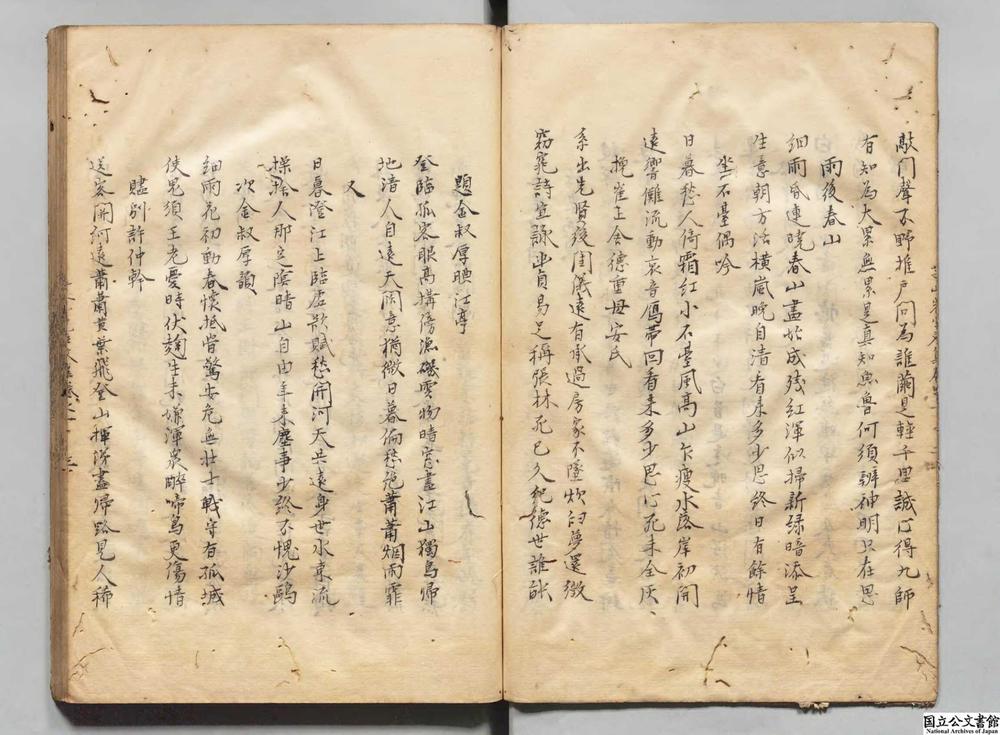 敲門聲不野推戶問為誰繭是輕千思誠心得九師
有知為大累無累是真知魚魯何須辨神明只在思
雨後春山
細雨昏連曉春山盡成殘紅渾似掃新綠暗添呈
生意朝方活橫嵐晚自清看來多少思終日有餘情
坐不臺偶吟
日暮愁人倚霜紅小不臺風高山乍瘦水落岸初開
遠響催流動哀音鴈帶回看來多少思心死未全灰
挽崔上舍德重母安氏
系出先賢後閨儀遠有承過房家不墜炊臼夢還徵
窈窕詩宜詠幽貞易足稱張林死已久紀德世誰能
題金叔厚腰江亭
登臨孤客眼高構傍漁磯雲物暗窓盡江山獨鳥歸
地清人自遠天闊意猶微日暮偏愁絕蕭蕭烟雨霏
又
日暮澄江上臨虛欲賦愁開河天共遠身世水東流
操捨人那立陰晴山自由年來塵事少終不愧沙鷗
次金叔厚韻
細雨花初動春懷抵當驚安危無壯士戰守有孤城
使鬼須王老憂時伏麴生未嫌渾衆醉啼鳥更傷情
贐別許仲幹
送客開河遠蕭蕭黃葉飛登山揮淚盡歸路見人稀
国立公文書館
National Archives of Japan